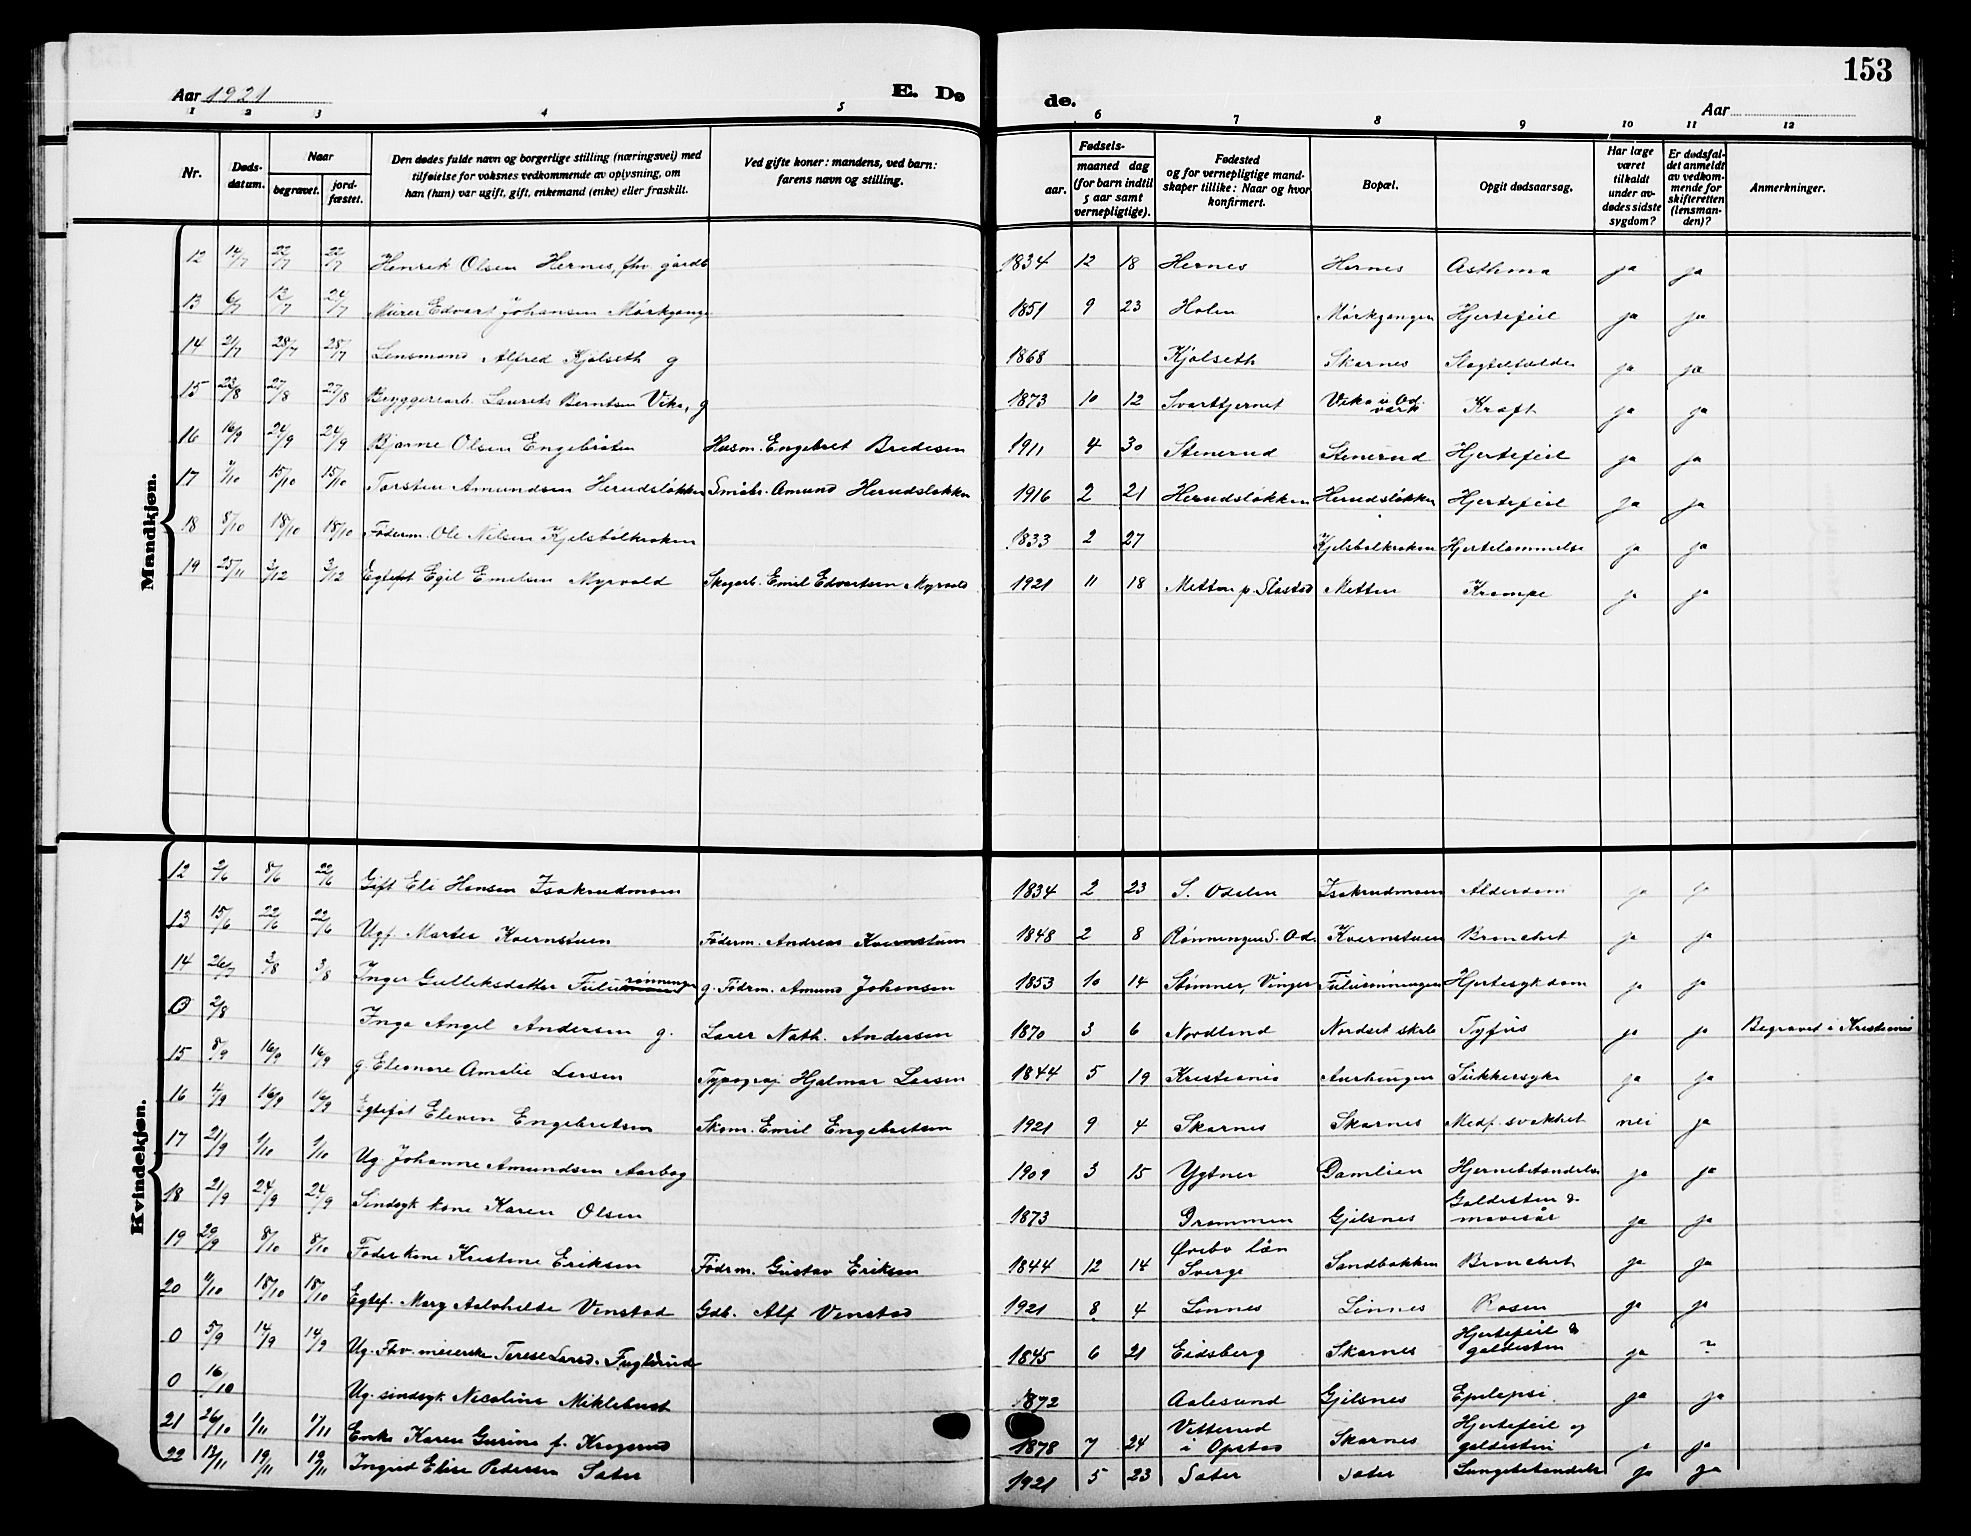 153
Aar 1921
E. Dø
de.
Aar
1 2 3 4 5 6 7 8 9 10 11 12
Nr.
Døds-
datum.
Naar
begravet.
jord-
fæstet.
Den dødes fulde navn og borgerlige stilling (næringsvei) med
tilføielse for voksnes vedkommende av oplysning, om
han (hun) var ugift, gift, enkemand (enke) eller fraskilt.
Ved gifte koner: mandens, ved barn:
farens navn og stilling.
Fødsels-
aar.
maaned dag
(for barn indtil
5 aar samt
vernepligtige).
Fødested
og for vernepligtige mand-
skaper tillike: Naar og hvor
konfirmert.
Bopæl.
Opgit dødsaarsag.
Har læge
været
tilkaldt
under av-
dødes sidste
sygdom?
Er dødsfal-
det anmeldt
av vedkom-
mende for
skifteretten
(lensman-
den)?
Anmerkninger.
Mandkjøn.
12 14/7 22/7 22/7 Henrik Olsen Hernes, fhv. gårdb 1834 12 18 Hernes Hernes Asthma ja ja
13 6/7 13/7 24/7 Murer Edvart Johansen Mørkgange 1851 9 23 Holen Mørkgangen Hjertefeil ja ja
14 21/7 28/7 28/7 Lensmand Alfred Kjølseth g 1868 Kjølseth Skarnes Slagtilfælde ja ja
15 23/8 27/8 27/8 Bryggeriarb. Laurits Berntsen Vika, g 1873 10 12 Svarttjernet Vika i Od. Kræft ja ja
16 16/9 24/9 24/9 Bjarne Olsen Engebråten Husm. Engebret Bredesen 1911 4 30 Stenerud Stenerud Hjertefeil ja ja
17 7/10 15/10 15/10 Torsten Amundsen Herudsløkken Småbr. Amund Herudsløkken 1916 2 21 Herudsløkken Herudsløkken Hjertefeil ja ja
18 8/10 18/10 18/10 Føderm. Ole Nilsen Kjelsbølkroken 1833 2 27 Kjelsbølkroken Hjertelammelse ja ja
19 25/11 3/12 3/12 Egteføt Egil Emilsen Myrvold Skogarb. Emil Edvartsen Myrvold 1921 11 18 Metten p. Slåstad Metten Krampe ja ja
Kvindekjøn.
12 2/6 8/6 22/6 Gift Eli Hansen Isakrudmoen 1834 2 23 S. Odalen Isakrudmoen Alderdom ja ja
13 15/6 22/6 22/6 Ugf. Martea Kvernstuen Føderm. Andreas Kvernstuen 1848 2 8 Rønningen S. Od. Kvernstuen Bronchit ja ja
14 26/7 3/8 3/8 Inger Gulliksdatter Fulurønningen g. Fødrm. Amund Johansen 1853 10 14 Stømner, Vinger Fulurønningen Hjertesykdom ja ja
0 2/8 Inga Angel Andersen g. Lærer Nath. Andersen 1870 3 6 Nordland Nordset skole Tyfus ja ja Begravet i Kristiania
15 8/9 16/9 16/9 g. Eleonore Amalie Larsen Typograf Hjalmar Larsen 1844 5 19 Kristiania Aurhaugen Sukkersyke ja ja
16 16/9 16/9 Egteføt Eleven Engebretsen Skom. Emil Engebretsen 1921 9 4 Skarnes Skarnes Medf. svakhet nei ja
17 21/9 1/10 1/10 Ug. Johanne Amundsen Aarbog 1909 3 15 Ygtner Damlien Hjernebetændelse ja ja
18 21/9 24/9 24/9 Sindsyk kone Karen Olsen 1873 Drammen Gjelsnes Galdesten & mavesår ja ja
19 29/9 8/10 8/10 Føderkone Kristine Eriksen Fødrm. Gustav Eriksen 1844 12 14 Ørebo län Sverge Sandbakken Bronchit ja ja
20 11/10 18/10 18/10 Egtef. Mary Aslohilde Venstad Gdb. Alf Venstad 1921 8 4 Linnes Linnes Rosen ja ja
0 5/9 14/9 14/9 Ug. Fhv. meierske Terese Larsd. Fuglerud 1845 6 21 Eidsberg Skarnes Hjertefeil & galdesten ja ?
0 16/10 Ug. sindsyk Nicoline Miklebust 1872 Aalesund Gjelsnes Epilepsi ja ja
21 26/10 1/11 1/11 Enke Karen Gurine f. Krogsrud 1878 7 24 Vetterud i Opstad Skarnes Hjertefeil og galdesten ja ja
22 13/11 19/11 19/11 Ingrid Elise Pedersen Sater 1921 5 23 Sater Sater Lungebetændelse ja ja